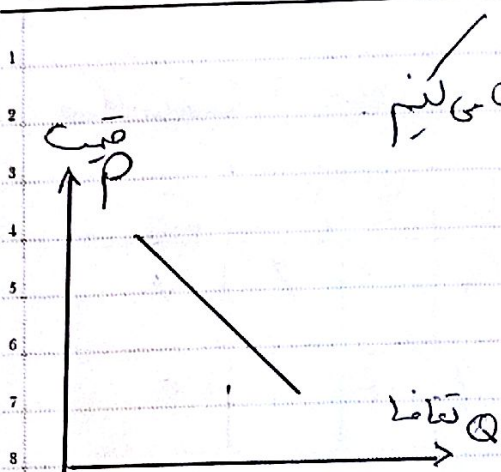 1
می کنیم
2
قیمت
P
3
4
5
6
7
تقاضا Q
8